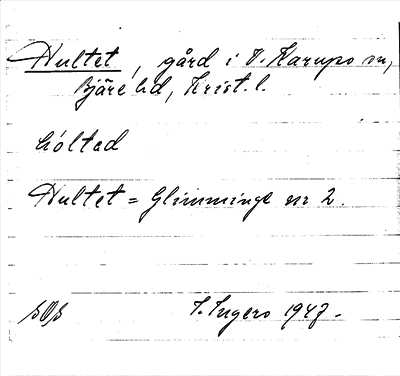 Hultet, gård i V. Karups sn,
Bjäre hd, Krist. l.
hólted
Hultet = Glimminge nr 2.
I. Ingers 1947.